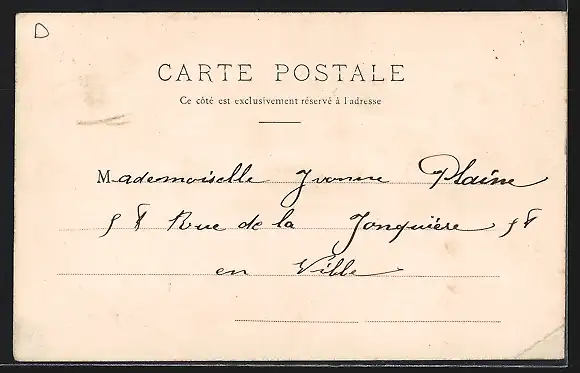 D
CARTE POSTALE
Ce côté est exclusivement réservé à l'adresse
Mademoiselle Yvonne Plaine
Rue de la Jonquière
en Ville